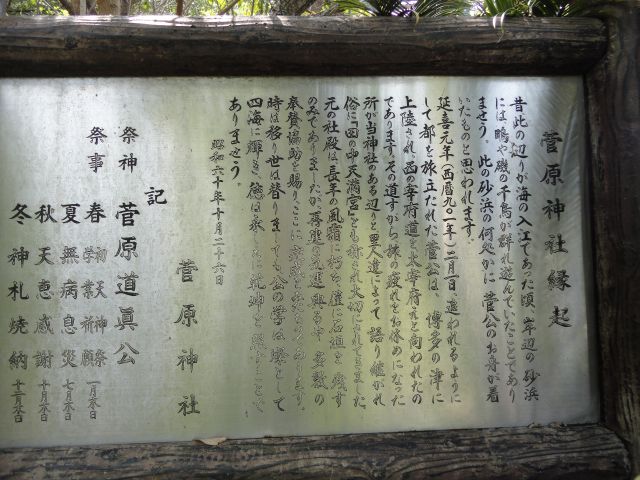 菅原神社縁起
昔此の辺りが海の入江であった頃、岸辺の砂浜
には、鴫や磯の千鳥が群れ遊んでいたことであり
ませう。此の砂浜の何処かに菅公のお舟が着
いたものと思われます。
延喜元年(西暦九〇一年)二月一日、追われるように
して都を旅立たれた菅公は、博多の津に
上陸され、西の宰府道を太宰府へと向われたの
であります。その道すがら旅の疲れをお休めになった
所が当神社のある辺りと里人達によって語り継がれ
俗に「田の中天満宮」とも称され大切にされてきました
元の社殿は、長年の風霜に朽ち、僅に石垣を残す
のみでありましたが、再建の気運興る中多数の
奉賛協助を賜り、ここに完成をみたのであります。
時は移り世は替りましても、公の誉は燈として
四海に輝き、徳は永しへに乾坤を照すことで
ありませう。
昭和六十年十月二十六日
菅原神社
記
祭神 菅原道眞公
祭事 春 初天神祭 学業祈願 一月六日
夏 無病息災 七月六日
秋 天恵感謝 十月六日
冬 神札焼納 十二月六日